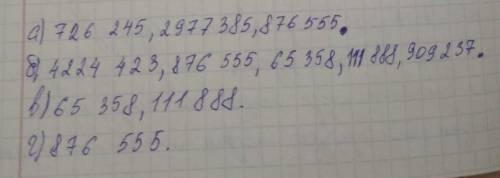 а) 726 245, 2977385, 876 555.
б) 4224 423, 876 555, 65 358, 111 888, 909 237.
в) 65 358, 111 888.
г) 876 555.